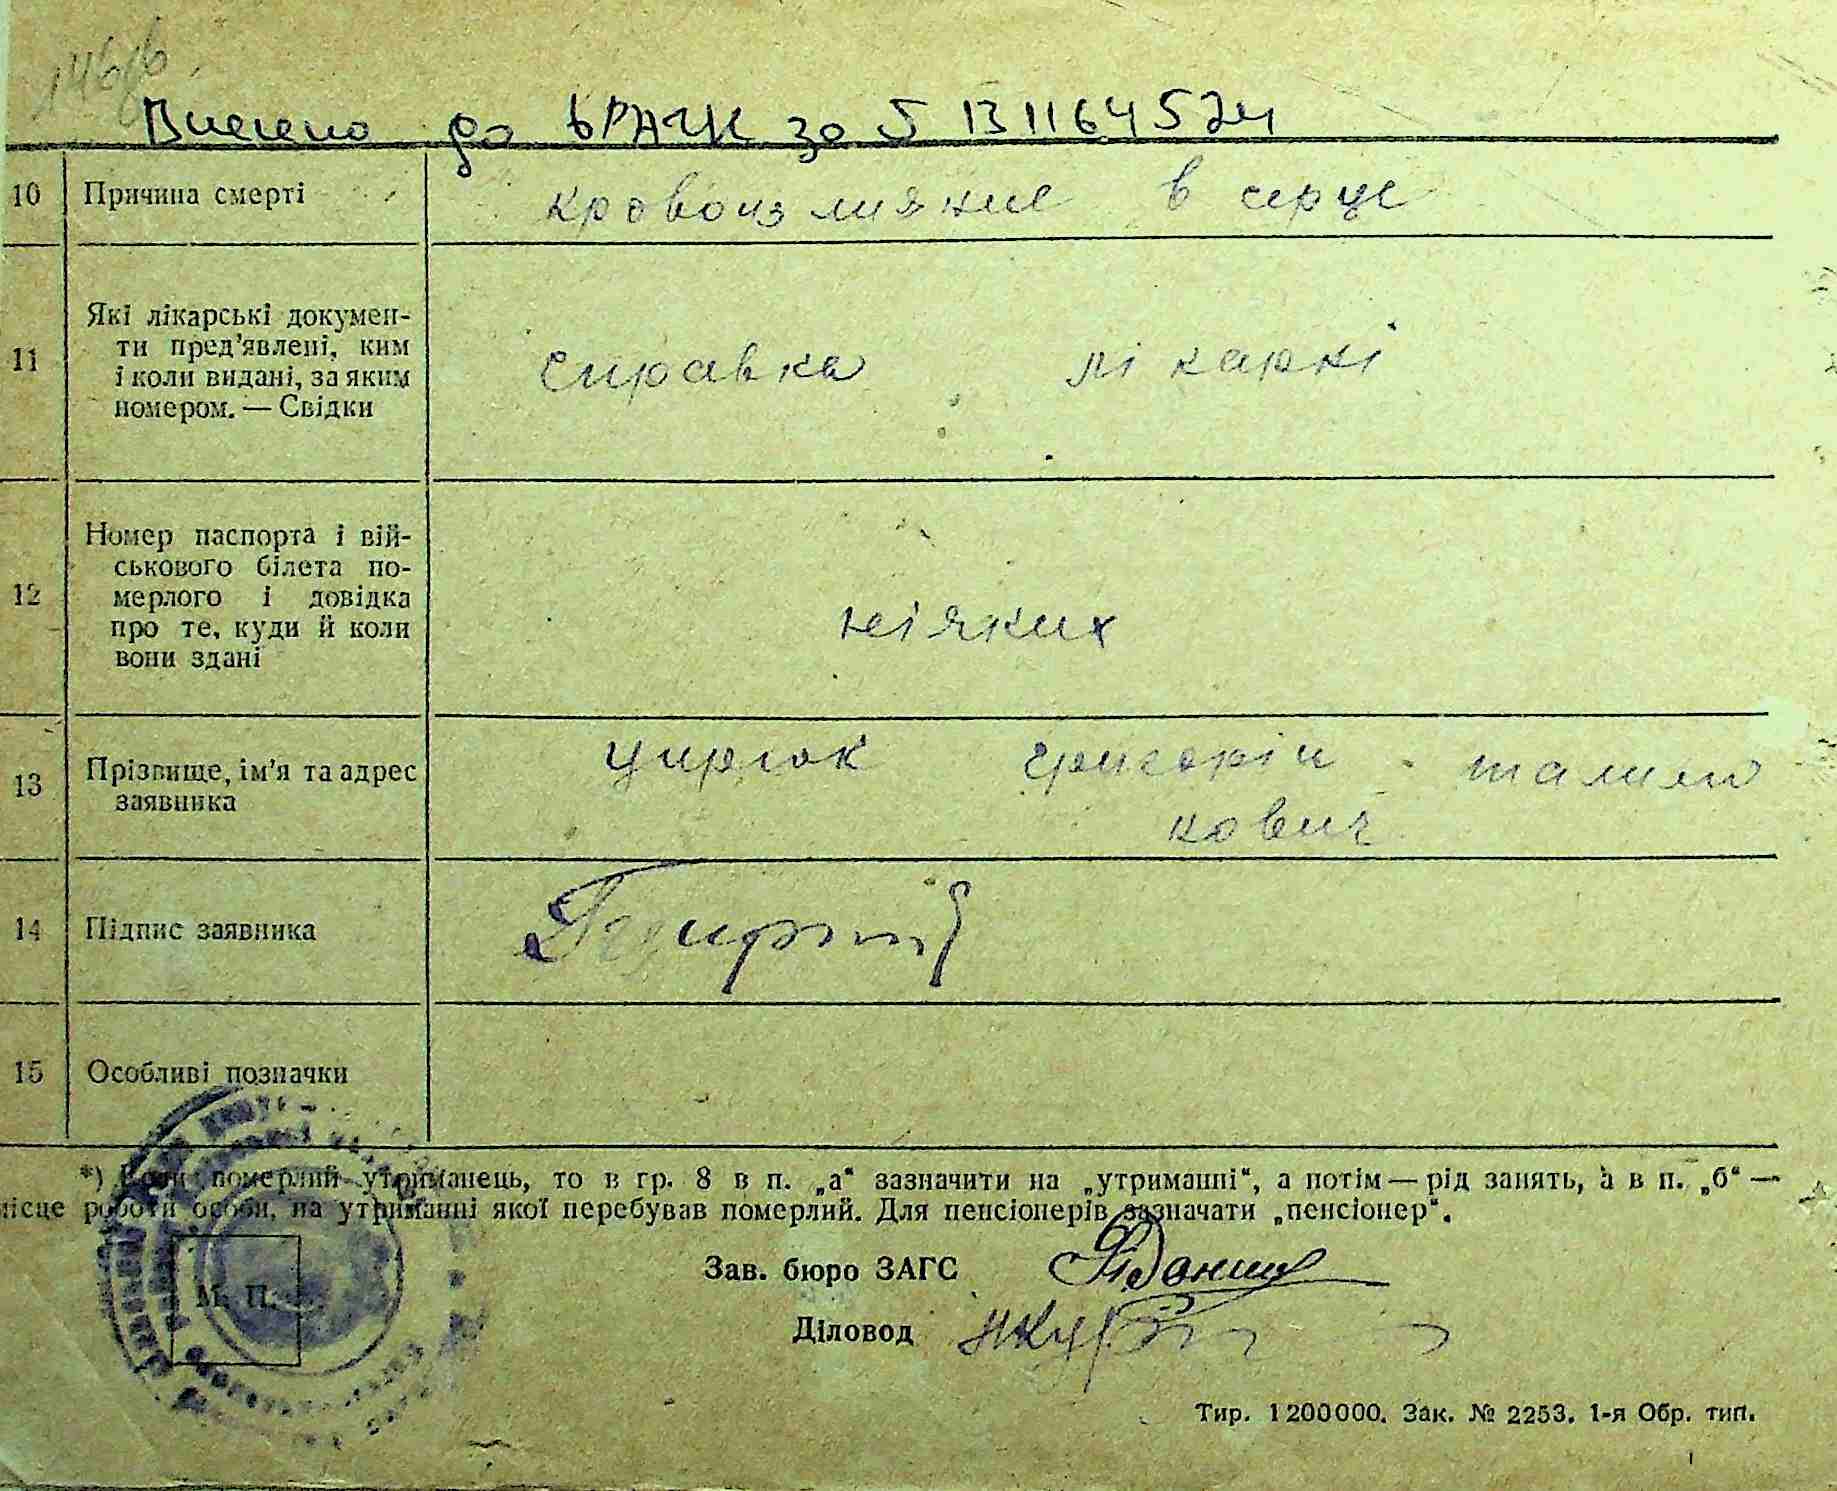 146
Внесено до ЬРАЧК за 5 131164574
10 Причина смерті кровоизлияние в серце
11 Які лікарські документи
Які лікарські докумен-
ти пред'явлені, ким
і коли видані, за яким
номером. — Свідки
справка лікаркі
12
Номер паспорта і вій-
ськового білета по-
мерлого і довідка
про те, куди й коли
вони здані
ніяких
13
Прізвище, ім'я та адрес
заявника
Григорій
кович
14 Підпис заявника
15 Особливі позначки
*) Коли померлий утриманець, то в гр. 8 в п. „а“ зазначити на „утриманні“, а потім — рід занять, а в п. „б“ —
місце роботи особи, на утриманні якої перебував померлий. Для пенсіонерів зазначати „пенсіонер“.
М. П.
Зав. бюро ЗАГС
Діловод
Тир. 1200000. Зак. № 2253. 1-я Обр. тип.